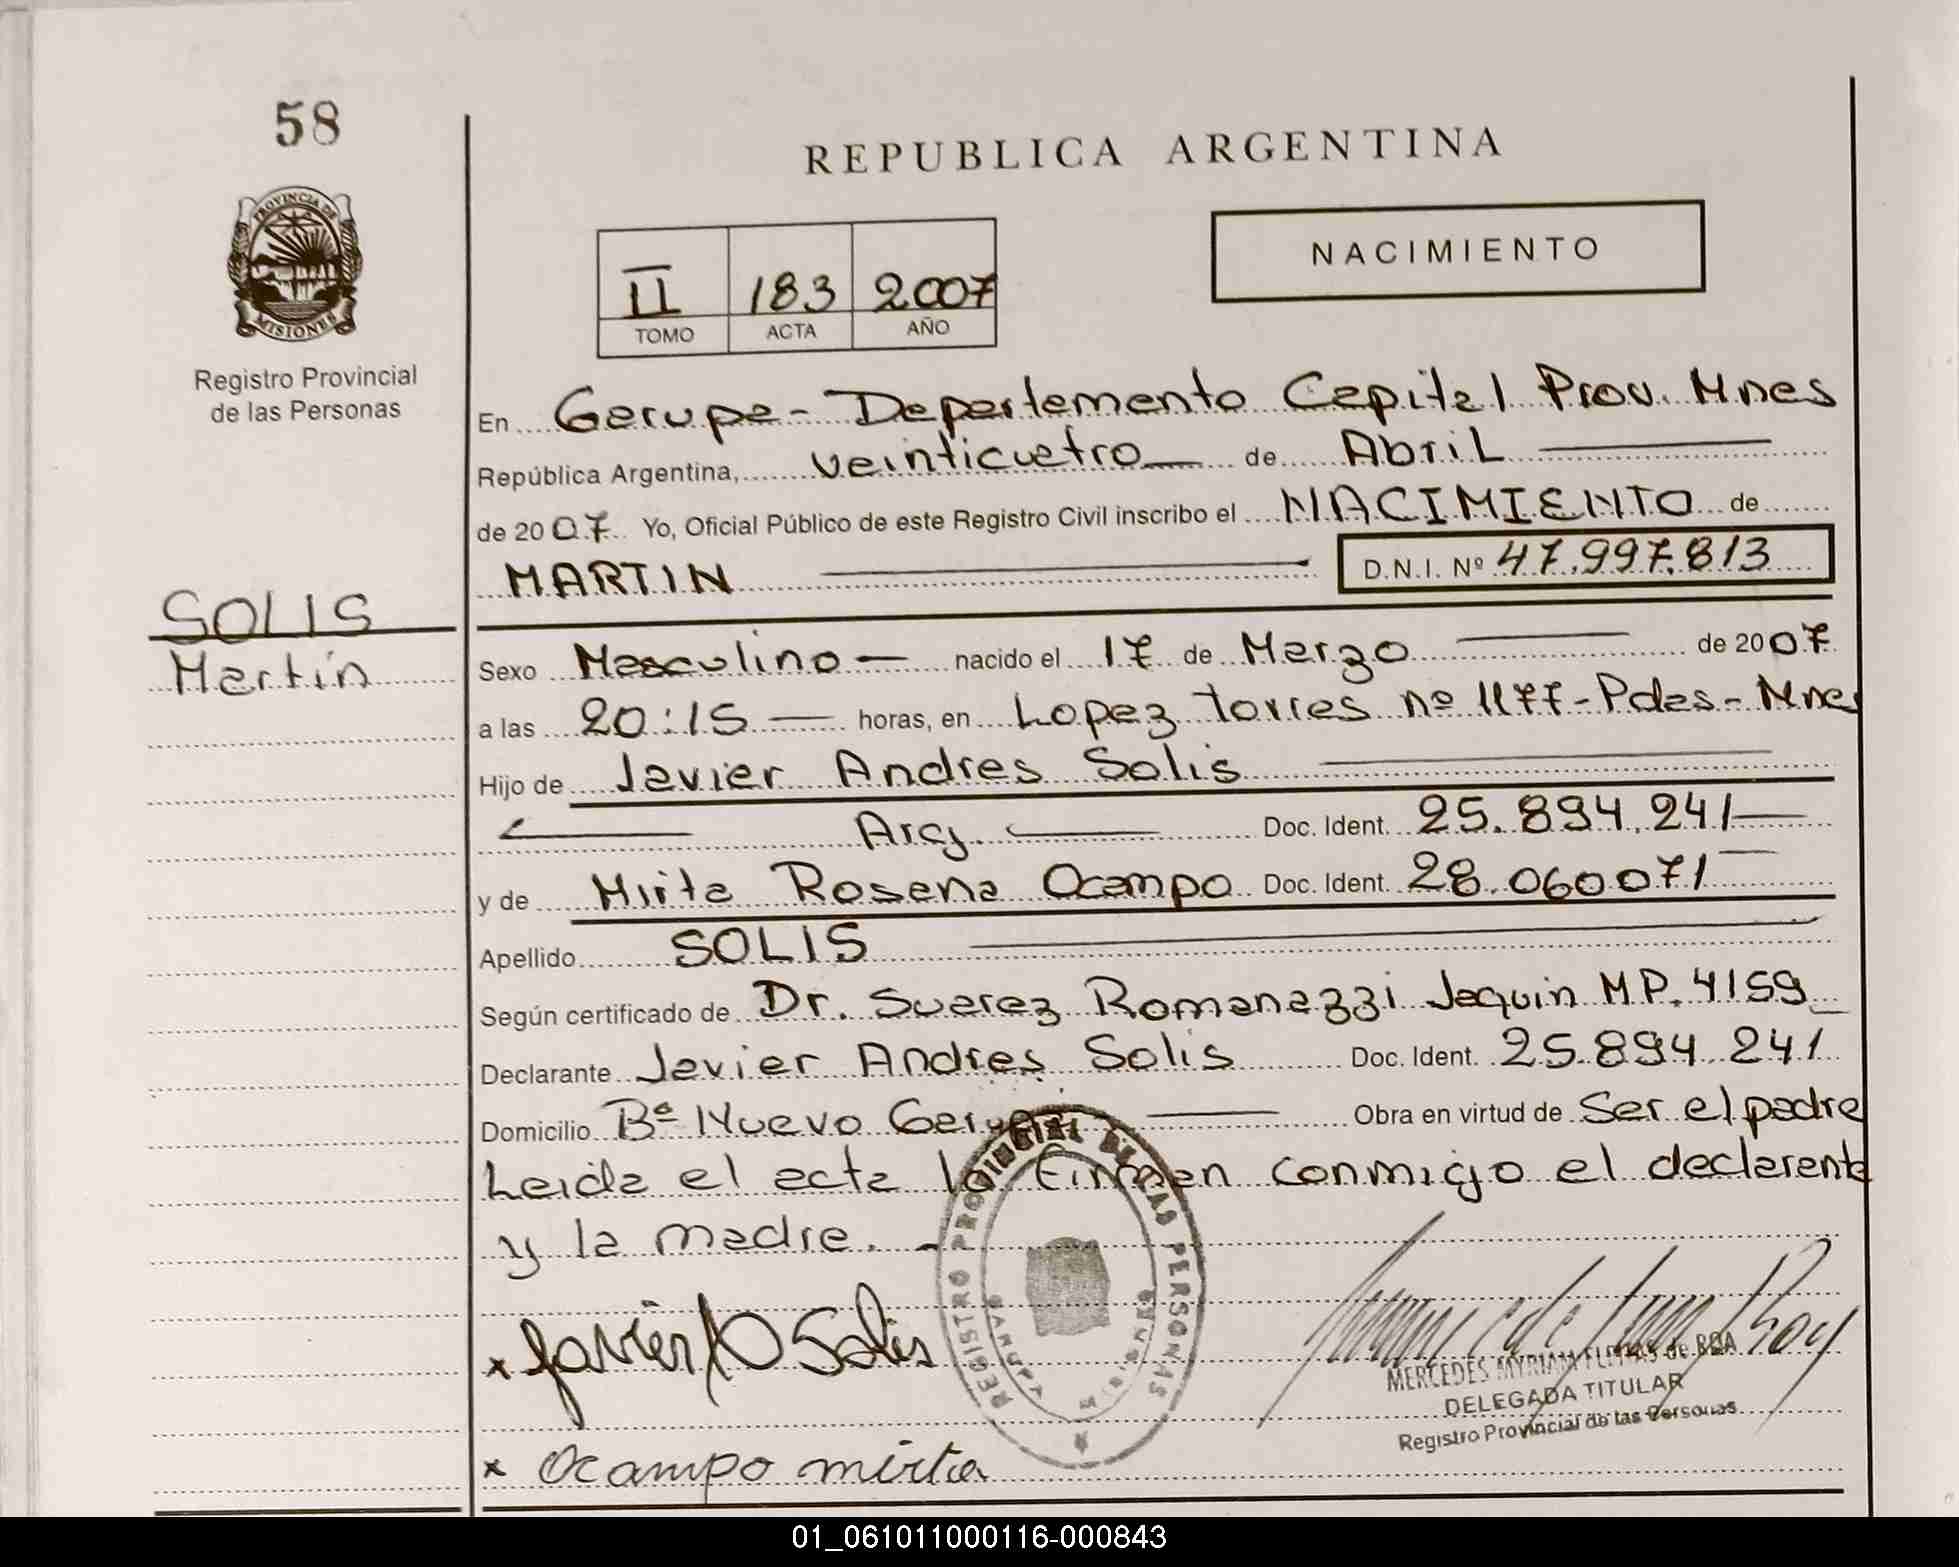 58
REPUBLICA ARGENTINA
PROVINCIA DE
MISIONES
Registro Provincial
de las Personas
II 183 2007
TOMO ACTA AÑO
NACIMIENTO
En Garupa - Departamento Capital Prov. Mnes
República Argentina, veinticuatro de Abril
de 2007 Yo, Oficial Público de este Registro Civil inscribo el NACIMIENTO de
MARTIN D.N.I. Nº 47.997.813
SOLIS
Martín
Sexo Masculino - nacido el 17 de Marzo de 2007
a las 20:15 horas, en Lopez Torres nº 1177 - Pdas - Mnes
Hijo de Javier Andres Solis
Arg. Doc. Ident. 25.894.241
y de Mirta Rosana Ocampo Doc. Ident. 28.060071
Apellido SOLIS
Según certificado de Dr. Suarez Romanazzi Jaquin M.P. 4159
Declarante Javier Andres Solis Doc. Ident. 25.894.241
Domicilio Bº Nuevo Garupa Obra en virtud de Ser el padre
Leida el acta la firman conmigo el declarante
y la madre. -
REGISTRO PROVINCIAL DE LAS PERSONAS
GARUPA MISIONES
x Javier A Solis
MERCEDES MYRIAM de BOA
DELEGADA TITULAR
Registro Provincial de las Personas
x Ocampo mirta
01_061011000116-000843